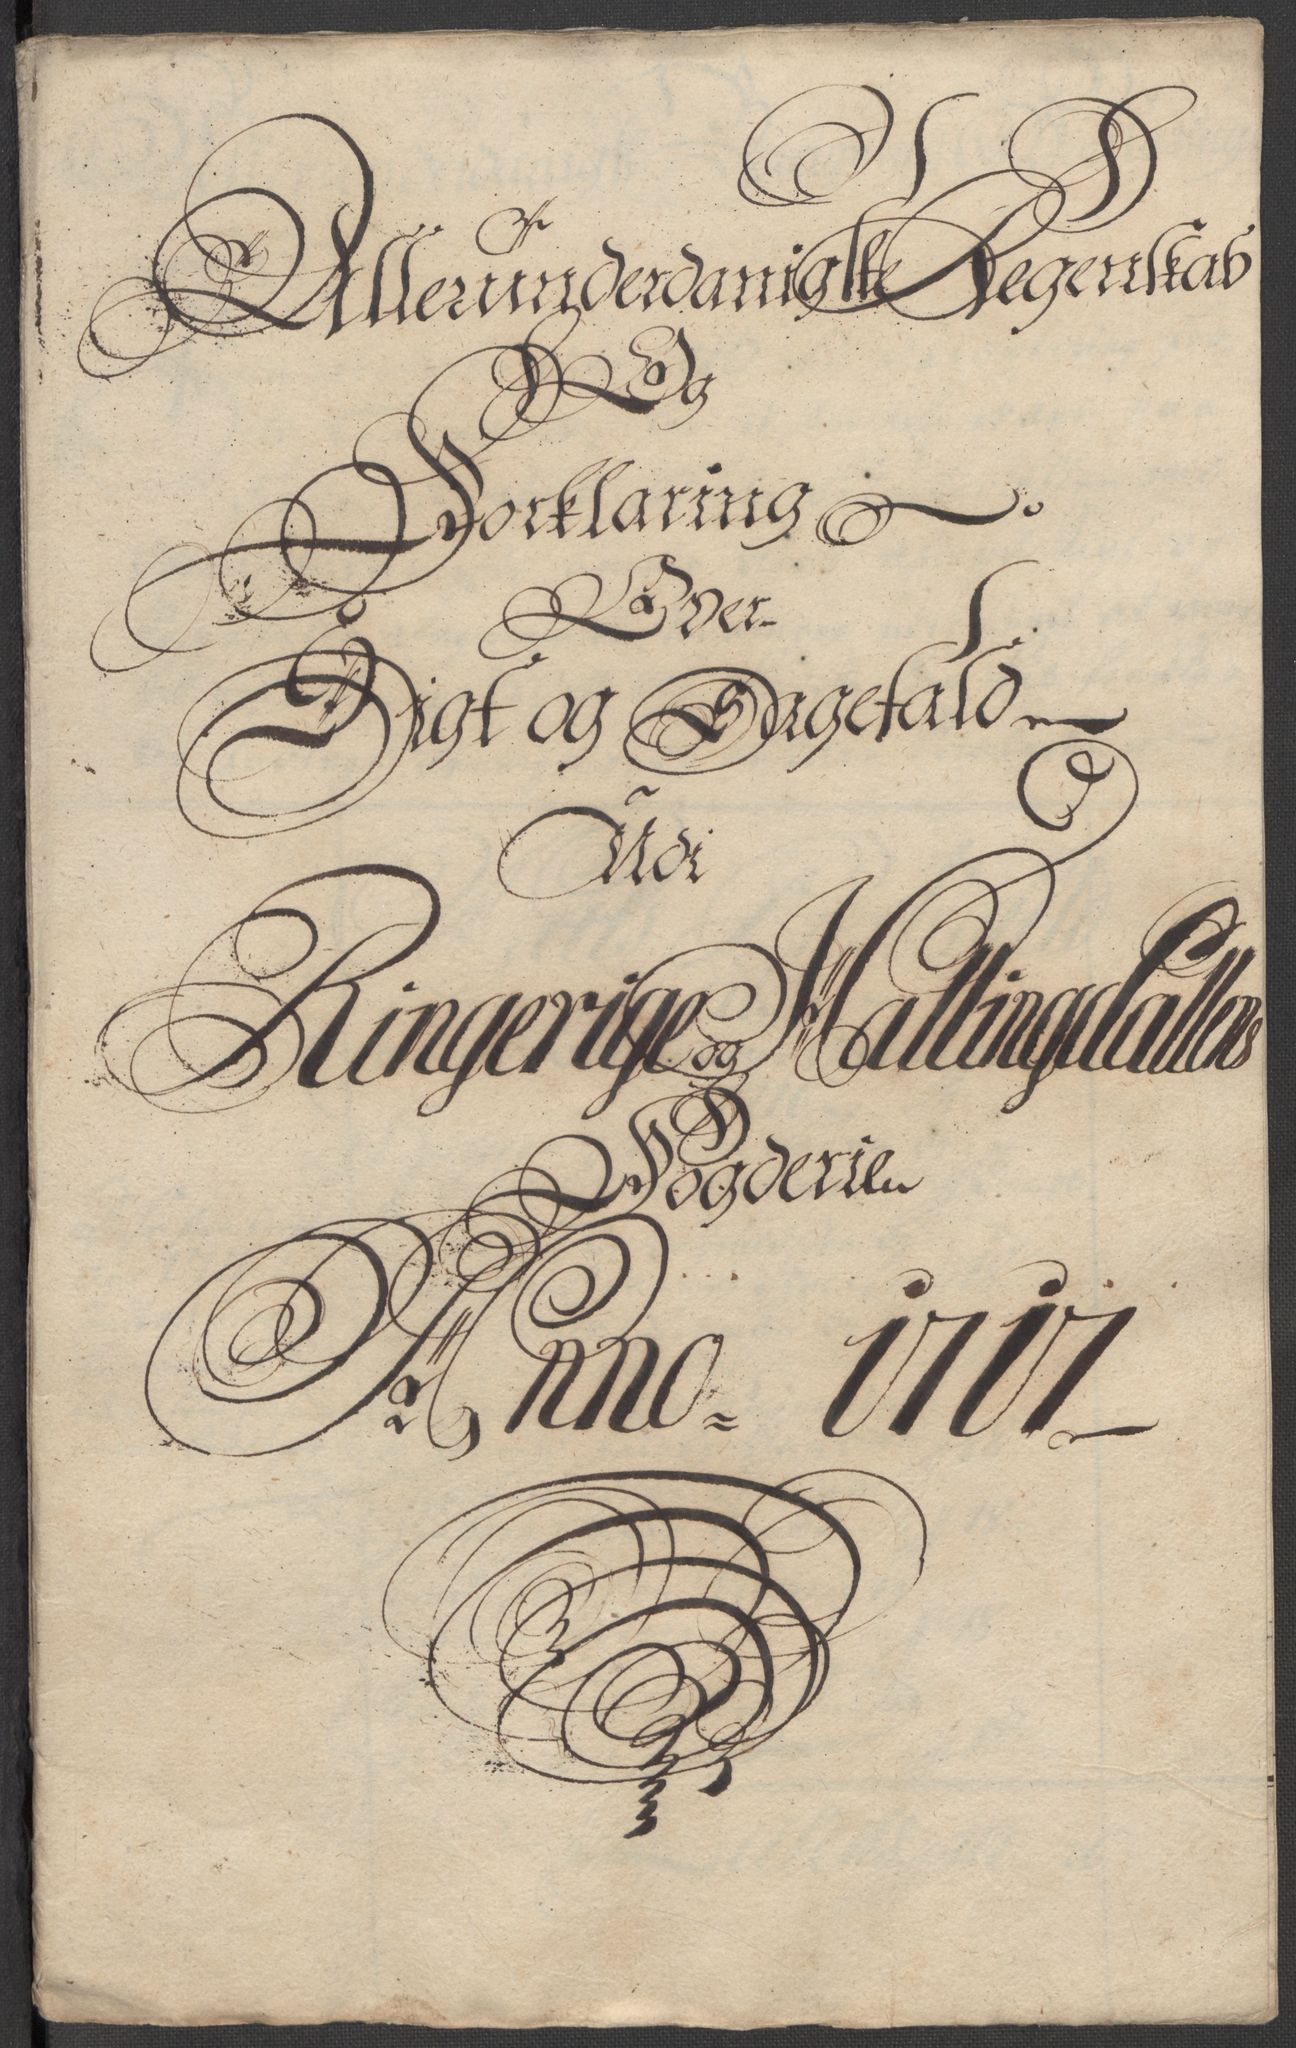 Alleründerdanigste Regenskab
Og
Forklaring
Over
Sigt og Sagefald
Udi
Ringerige og Hallingdallens
Fogderie
Anno 1717